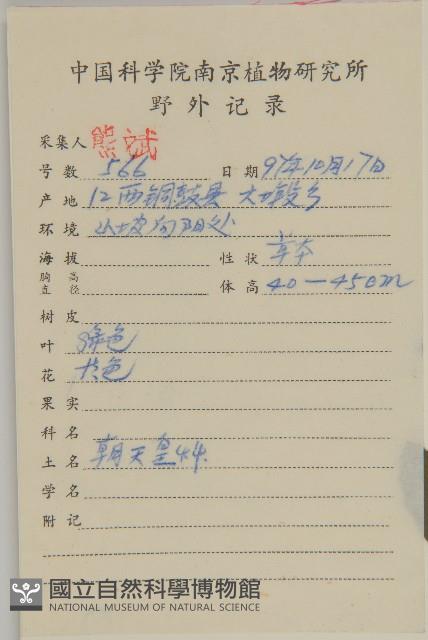 中国科学院南京植物研究所
野外记录
采集人 熊斌
号数 566 日期 97年10月17日
产地 江西铜鼓县 大塅乡
环境 山坡向阳处
海拔 性状 草本
胸高直径 体高 40—45cm
树皮
叶 绿色
花 色
果实
科名
土名 朝天
学名
附记
國立自然科學博物館
NATIONAL MUSEUM OF NATURAL SCIENCE